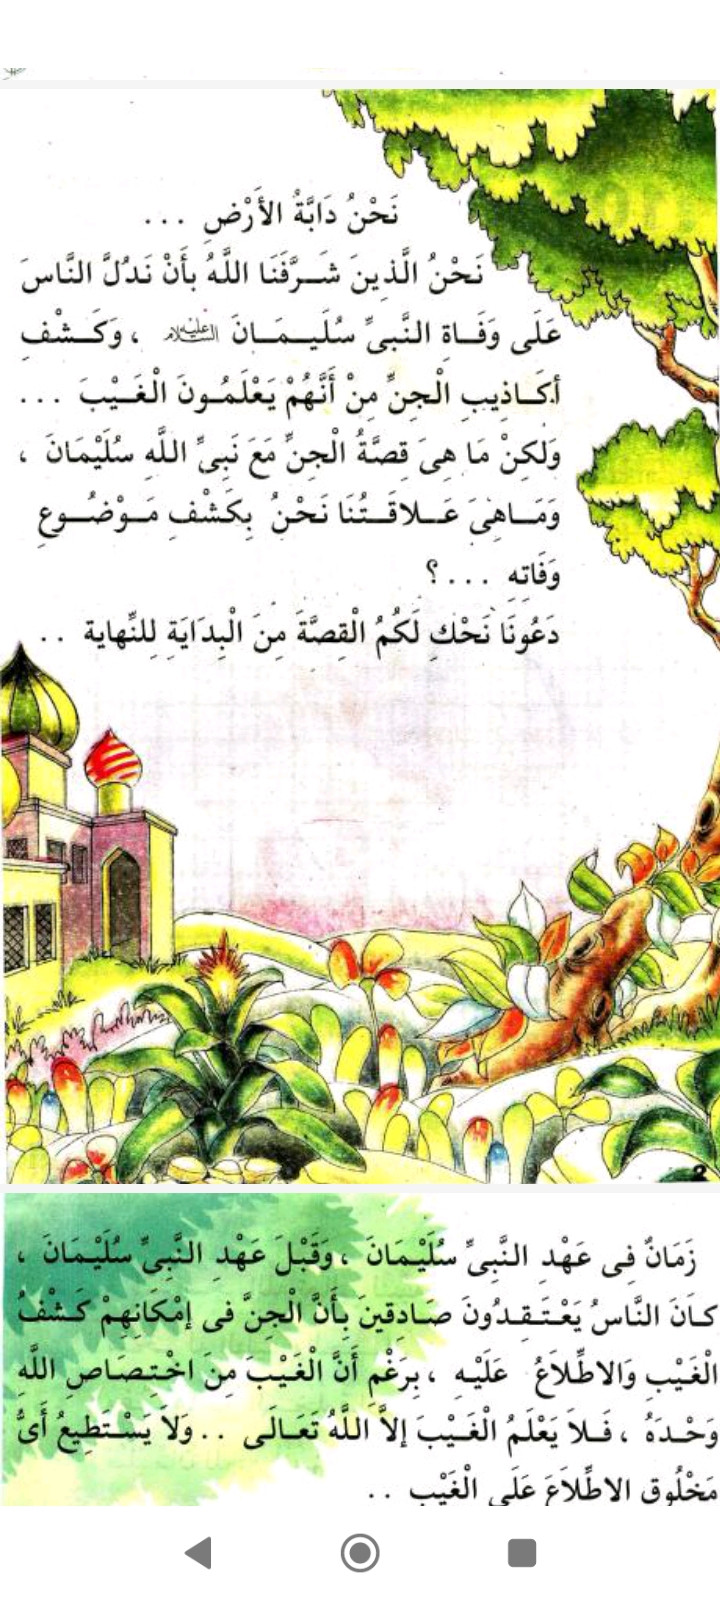 نَحْنُ دَابَّةُ الأَرْضِ ...
نَحْنُ الَّذِينَ شَـرَّفَنَا اللَّهُ بِأَنْ نَدُلَّ النَّاسَ
عَلَى وَفَـاةِ النَّبِىِّ سُلَيـمَـانَ عليه السلام ، وَكَـشْفِ
أَكَـاذِيبِ الْجِنِّ مِنْ أَنَّهُمْ يَعْلَمُـونَ الْغَـيْبَ ...
وَلَكِنْ مَا هِىَ قِصَّةُ الْجِنِّ مَعَ نَبِىِّ اللَّهِ سُلَيْمَانَ ،
وَمَـاهِىَ عَـلاقَـتُنَا نَحْنُ بِكَشْفِ مَـوْضُـوعِ
وَفَاتِهِ ... ؟
دَعُونَا نَحْكِ لَكُمُ الْقِصَّةَ مِنَ الْبِدَايَةِ لِلنِّهايةِ ..
زَمَانٌ فِى عَهْدِ النَّبِىِّ سُلَيْمَانَ ، وَقَبْلَ عَهْدِ النَّبِىِّ سُلَيْمَانَ ،
كـانَ النَّاسُ يَعْتَـقِـدُونَ صَادِقِينَ بِأَنَّ الْجِنَّ فِى إِمْكَانِهِمْ كَـشْفُ
الْغَيْبِ وَالاطِّلاَعُ عَلَيْهِ ، بِرَغْمِ أَنَّ الْغَـيْبَ مِنَ اخْـتِصَاصِ اللَّهِ
وَحْـدَهُ ، فَـلاَ يَعْلَمُ الْغَـيْبَ إِلاَّ اللَّهُ تَعَـالَى .. وَلاَ يَسْـتَطِيعُ أَىُّ
مَخْلُوقٍ الاطِّلاَعَ عَلَى الْغَيْبِ ..